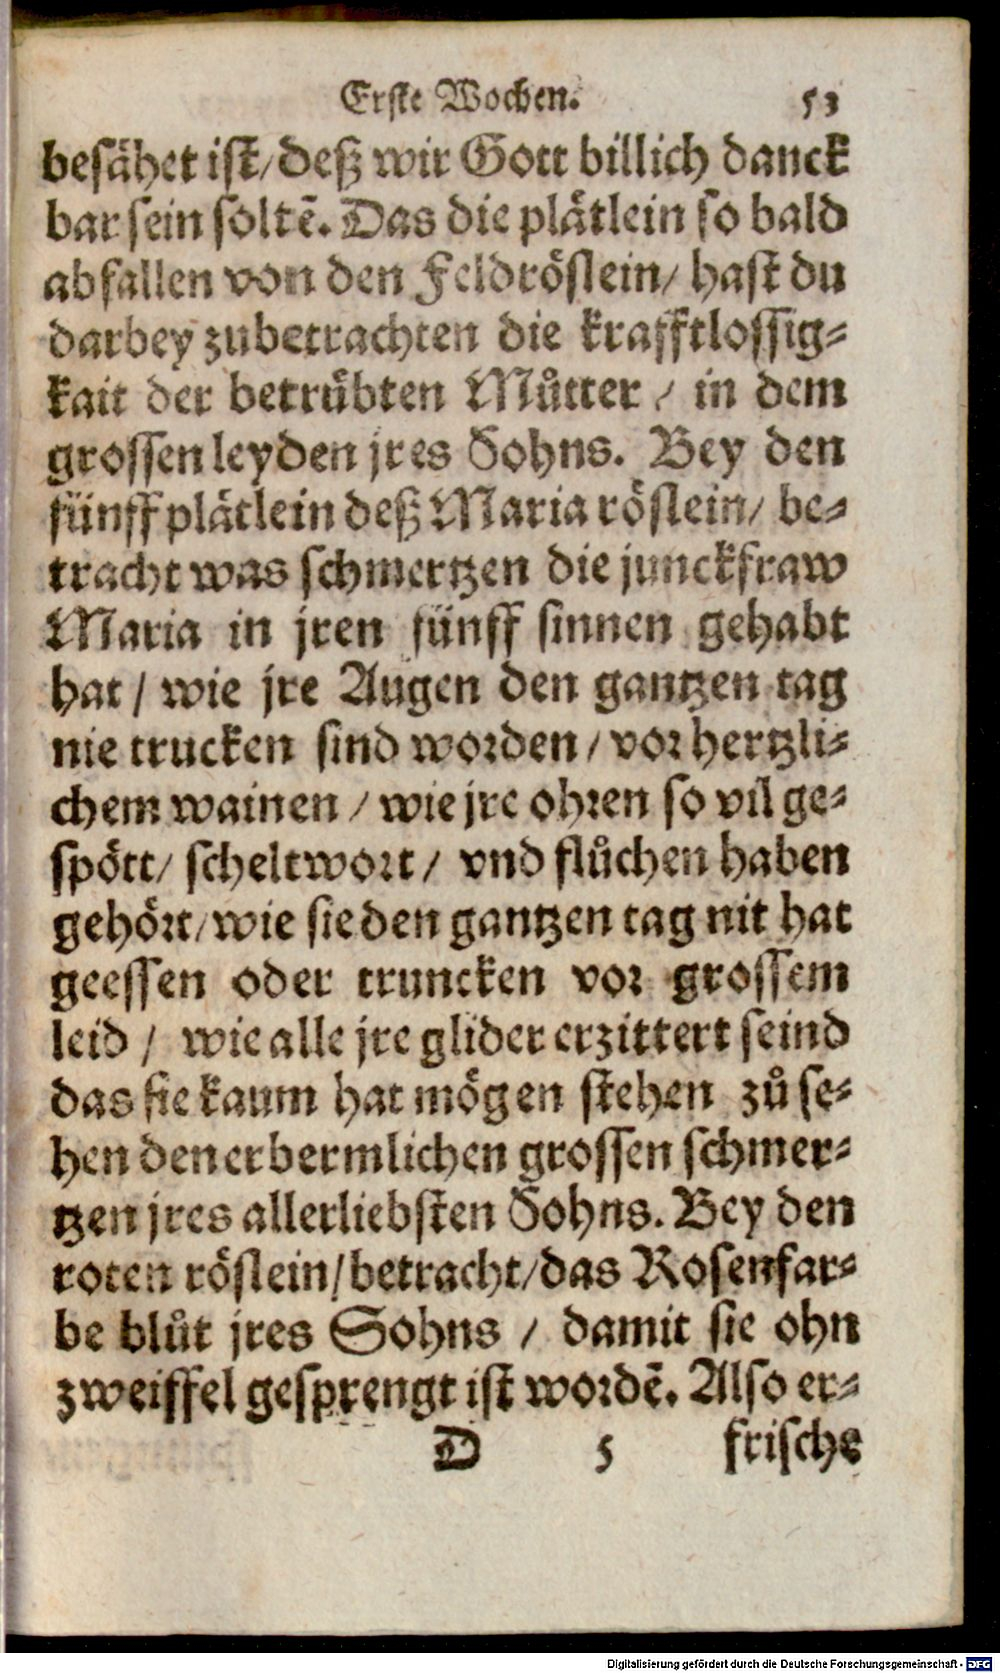 Erste Wochen. 53
besähet ist/ deß wir Gott billich danck
bar sein soltē. Das die plätlein so bald
abfallen von den Feldröslein/ hast du
darbey zubetrachten die krafftlossig⸗
kait der betrübten Můtter / in dem
grossen leyden jres Sohns. Bey den
fünff plätlein deß Maria röslein/ be⸗
tracht was schmertzen die junckfraw
Maria in jren fünff sinnen gehabt
hat / wie jre Augen den gantzen tag
nie trucken sind worden / vor hertzli⸗
chem wainen / wie jre ohren so vil ge⸗
spött/ scheltwort / vnd flůchen haben
gehört/ wie sie den gantzen tag nit hat
geessen oder truncken vor grossem
leid / wie alle jre glider erzittert seind
das sie kaum hat mögen stehen zů se⸗
hen den erbermlichen grossen schmer⸗
tzen jres allerliebsten Sohns. Bey den
roten röslein/ betracht/ das Rosenfar⸗
be blůt jres Sohns / damit sie ohn
zweiffel gesprengt ist wordē. Also er⸗
D 5 frische
Digitalisierung gefördert durch die Deutsche Forschungsgemeinschaft - DFG